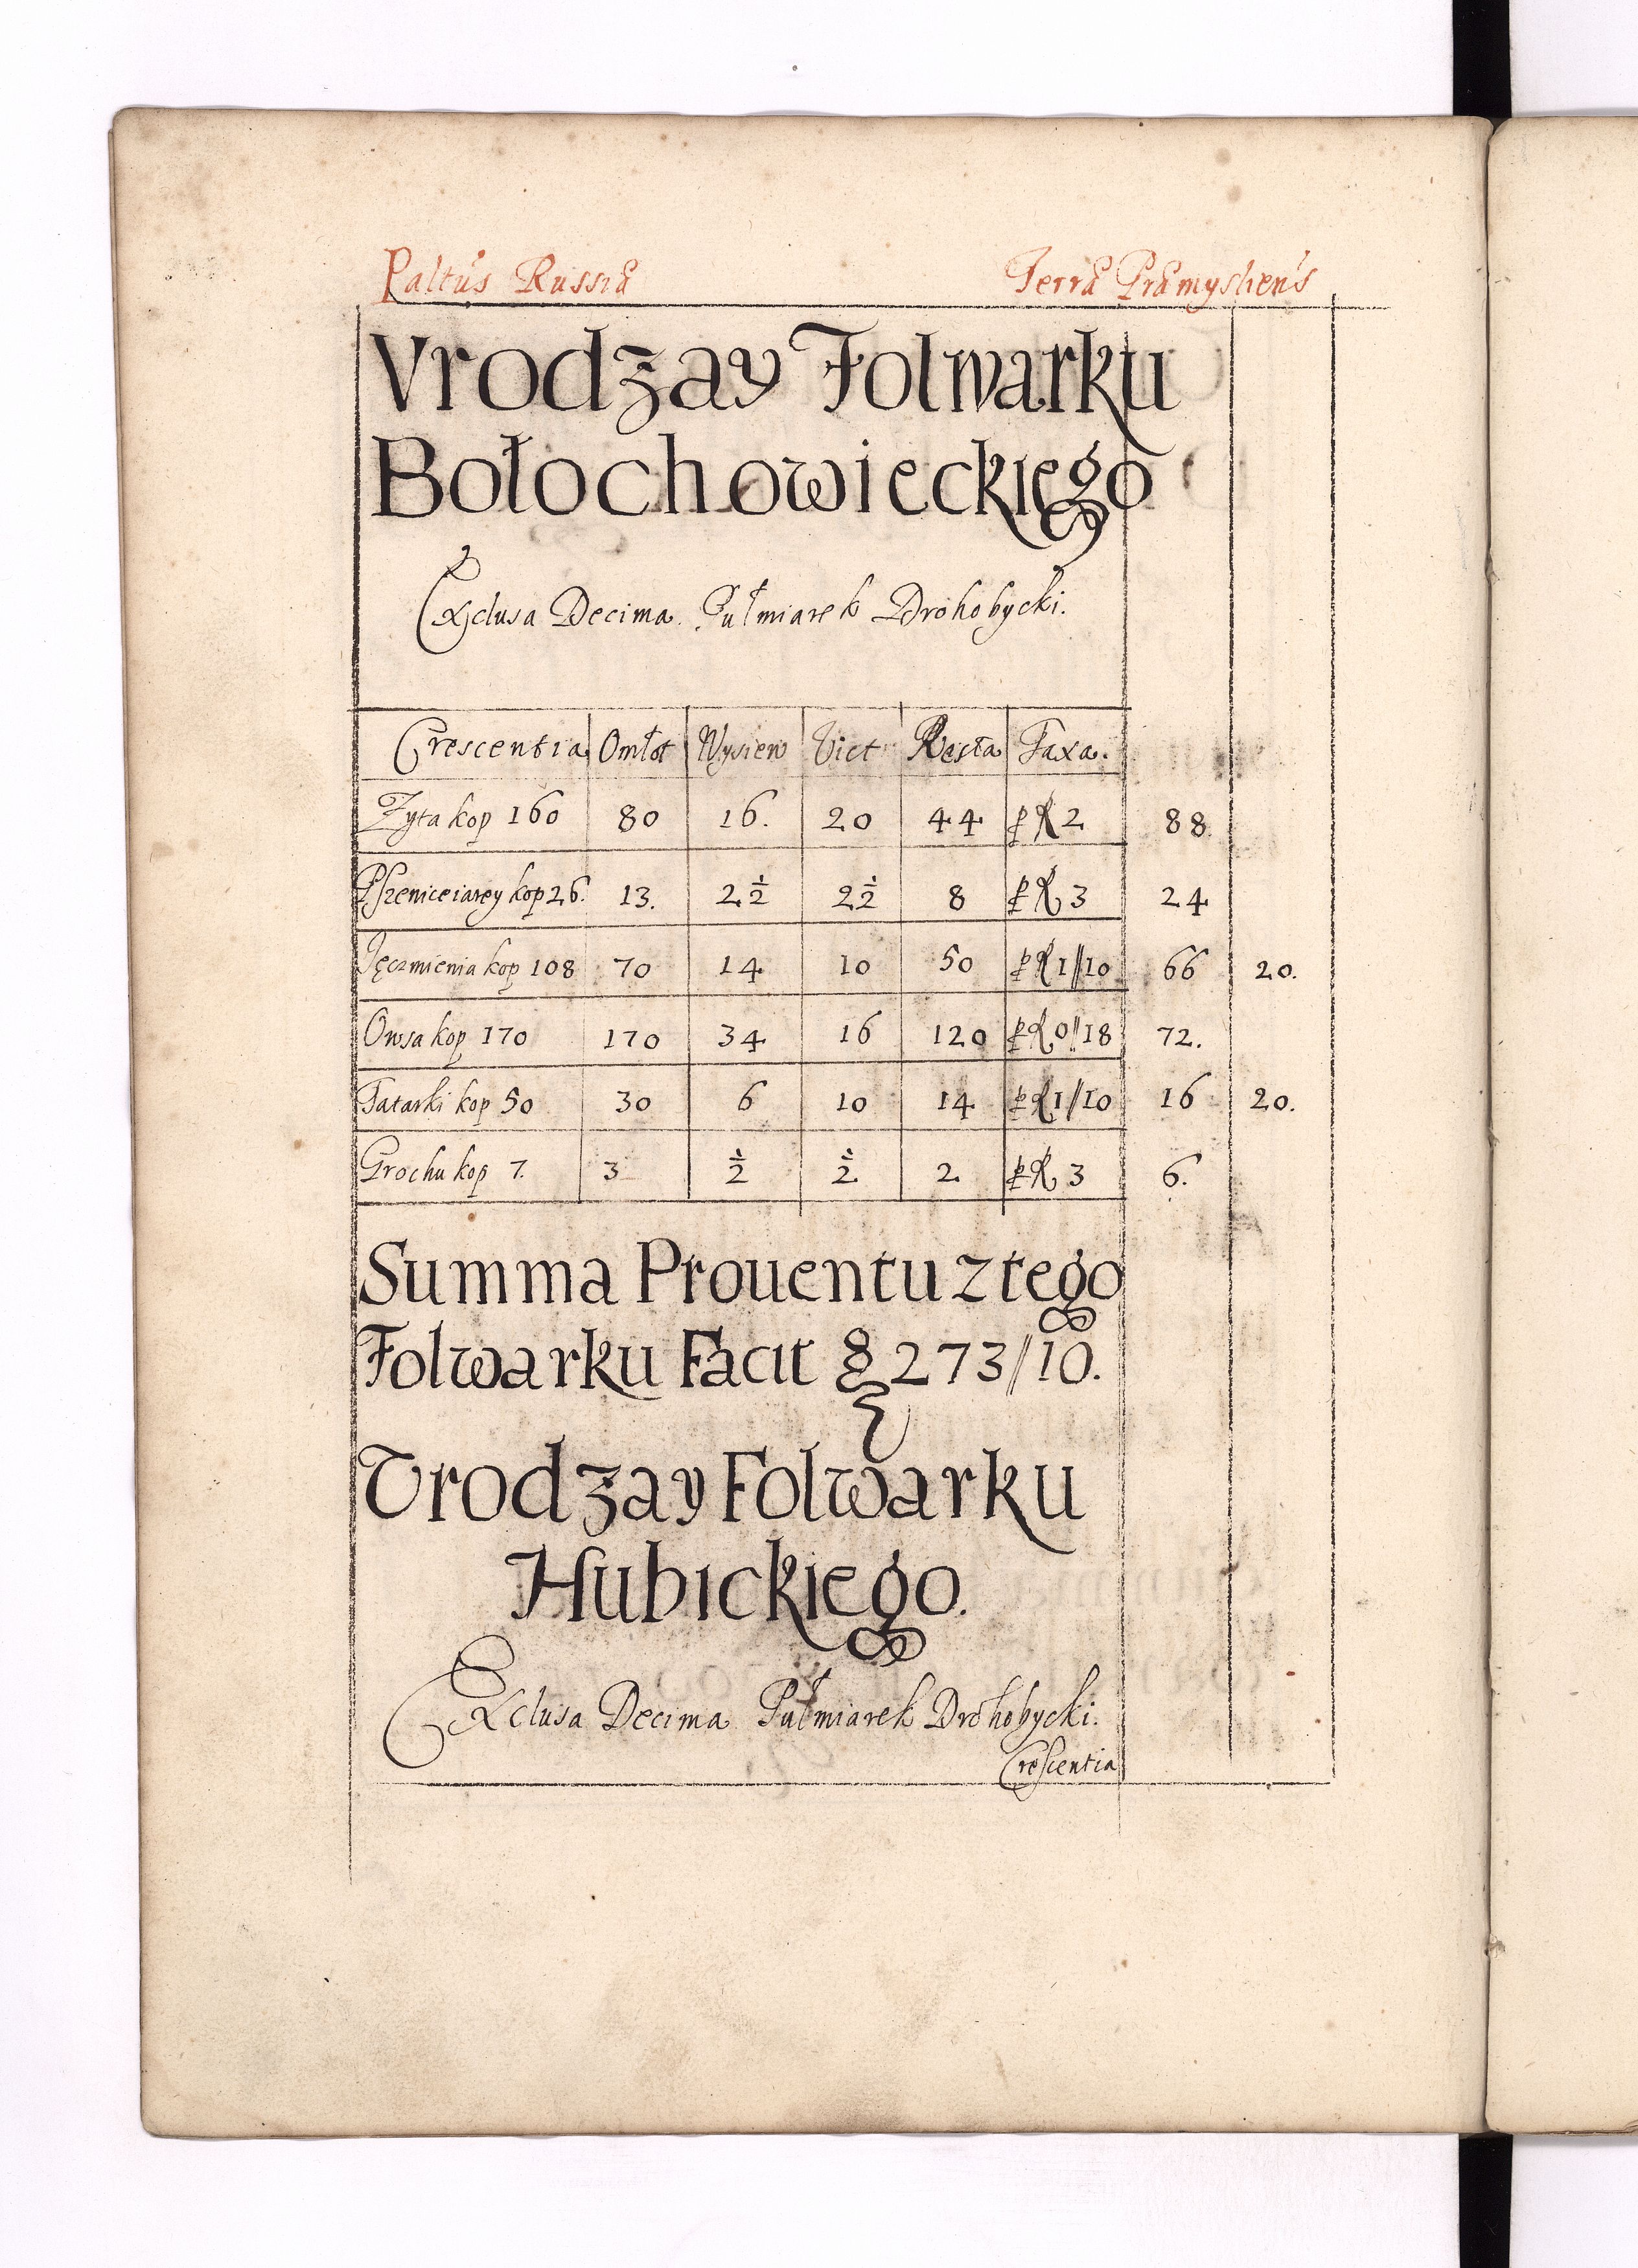 Paltus Russiæ Terræ Præmyslien's
Vrodzay Folwarku
Bołochowieckiego
Exclusa Decima. Pułmiarek Drohobycki.
Crescentia Omłot Wysiew Vict Resta Taxa.
Zyta kop 160 80 16. 20 44 2 88.
Pszenice iarey kop 26. 13. 2 1/2 2 1/2 8 3 24
Jęczmienia kop 108 70 14 10 50 1//10 66 20.
Owsa kop 170 170 34 16 120 0//18 72.
Tatarki kop 50 30 6 10 14 1//10 16 20.
Grochu kop 7. 3 1/2 1/2 2 3 6.
Summa Prouentu z tego
Folwarku Facit 273//10.
Vrodzay Folwarku
Hubickiego.
Exclusa Decima Pułmiarek Drohobycki.
Crescentia